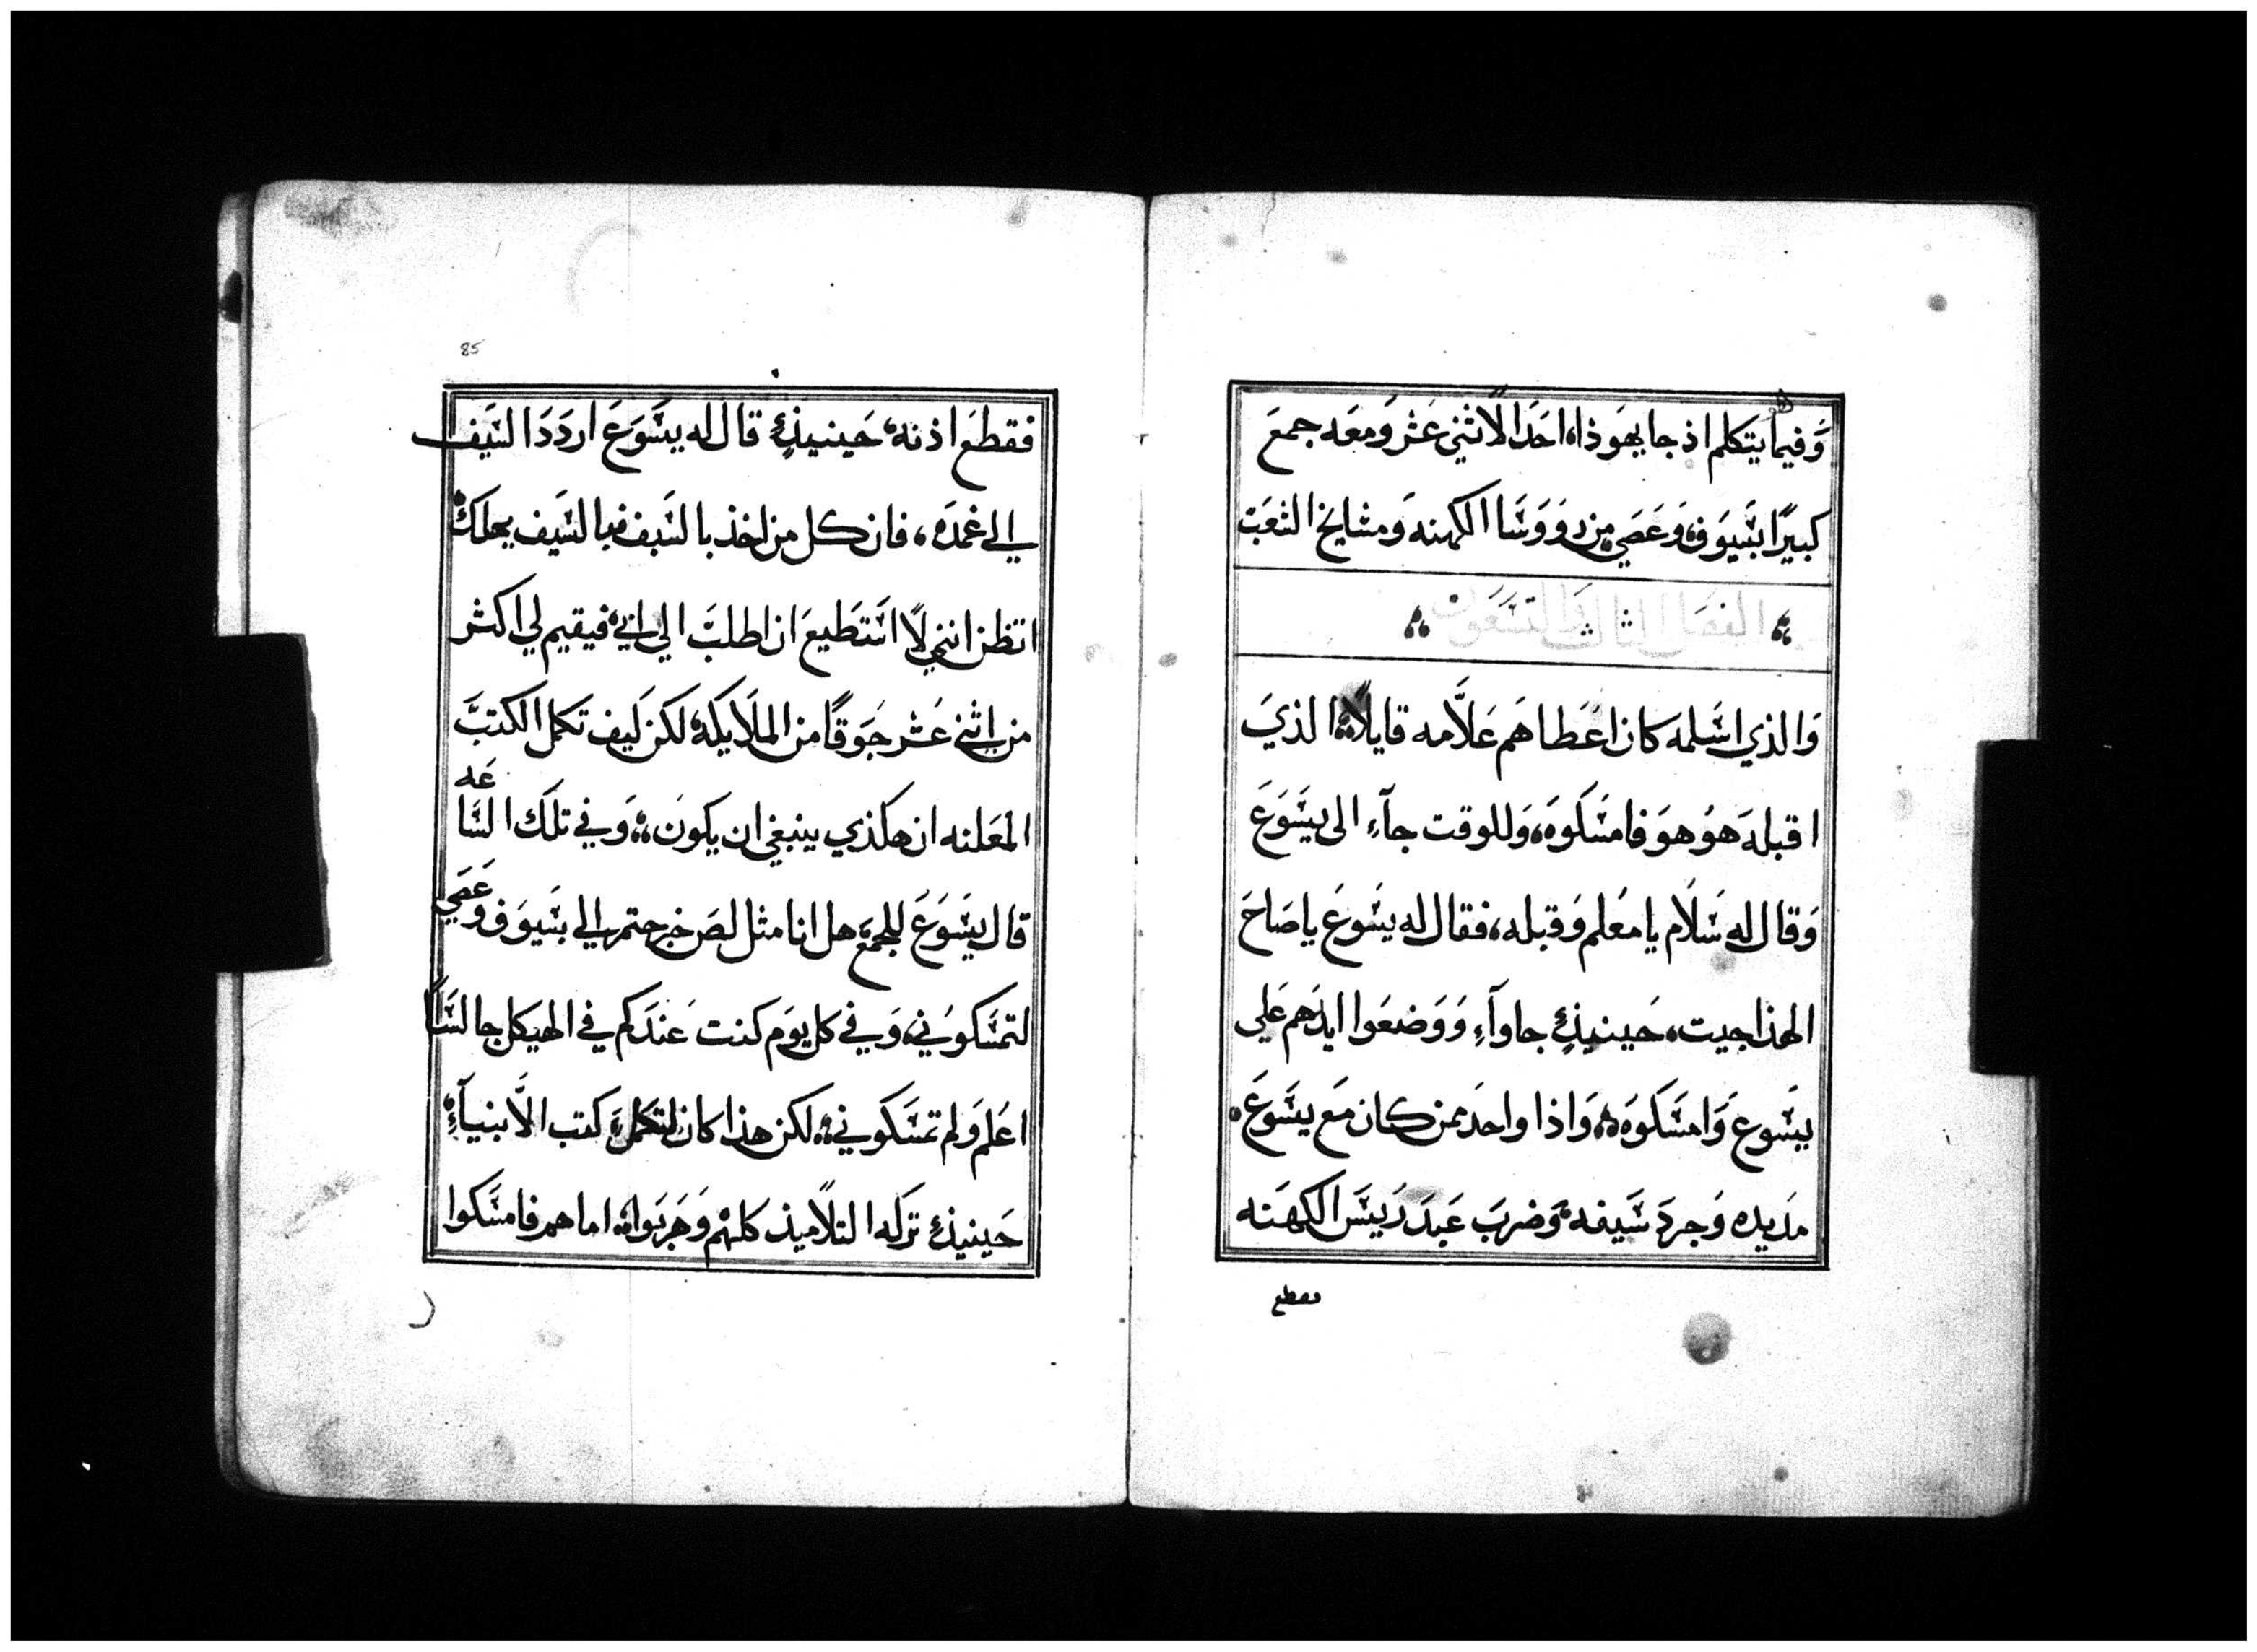 وَفيما يتكلم اذ جا يهَوذا، احَدَ الاثني عَشر وَمعَه جمعَ
كبيرًا بسَيوَف، وَعَصَي من روَوسَا الكهنه وَمشايخ الشعَب
الفصَل الثالث وَالتسَعَون
وَالذي اسَلمه كان اعَطاهَم عَلاَّمه قايلاً، الذيَ
اقبله هوُ هوَ فامسَكوَه، وَللوقت جآءِ الى يسَوَعَ
وَقال له سَلَام يا معُلم وَقبله، فقال له يسَوعَ يا صَاحَ
الهذا جيت، حَينيذٍ جاوآءِ وَوَضعَوا ايدَهم عَلي
يسَوعَ وَامسَكوَه، وَاذا واحدَ ممن كان معَ يسَوعَ،
مدَ يده وَجردَ سَيفه، وَضربَ عَبدَ رَييسَ الكهَنه
فقطع
85
فقطعَ اذنه، حَينيذٍ قال له يسَوَعَ اردَدَ السَيَف
الي غمدَه، فان كل من اخذ بالسَيف فبالسَيف يهلك
اتظن انني لاً استَطيعَ ان اطلبَ الي ابي، فيقيم لي اكثر
من اثني عَشر جَوَقاً من الملَايكه، لكن كَيف تكمل الكتبَ
المعَلنه ان هكذي ينبغي ان يكونَ، وَفي تلكَ السَاعَه
قال يسَوَعَ للجمعَ، هل انا مثل لصَ خرجتم الي بسَيوَف وَعَصَي
لتمسَكوُني، وَفي كل يوَم كنت عَندَكم في الهيكل جالسَاً
اعَلم وَلم تمسَكوني، لكن هذا كان لتكملَ كتب الاَنبيآءِ
حَينيذٍ تركه التلاًميذ كلهم وَهَربوَا، اما هم فامسَكوا